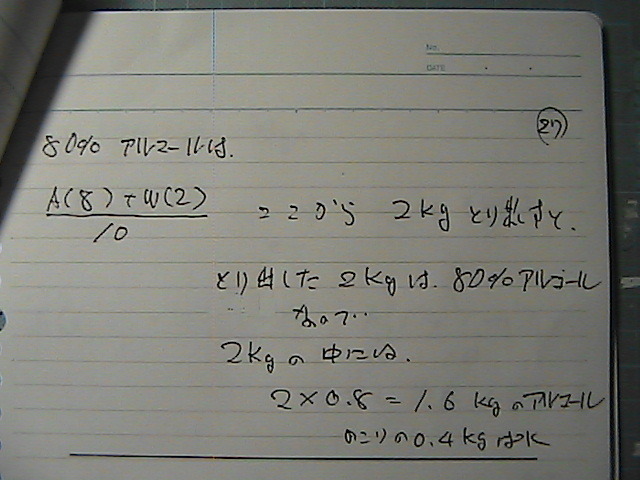 No.
DATE
27
80% アルコールは.
A(8)+W(2)
10
ここから 2kg とり出すと.
とり出した 2kgは. 80%アルコール
なので‥
2kgの中には.
2×0.8=1.6 kgのアルコール
のこりの0.4kgは水